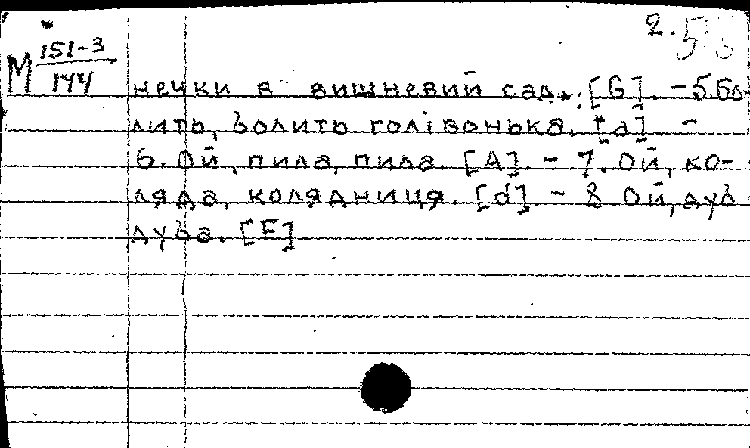 2.
М 151-3
144
нечки в вишневий сад. [G]. - 5 Бо-
лить, болить голівонька. [a] -
6. Ой, пила, пила [A]. - 7. Ой, ко-
ляда, колядниця. [d] - 8 Ой, дуб
дуба. [E]